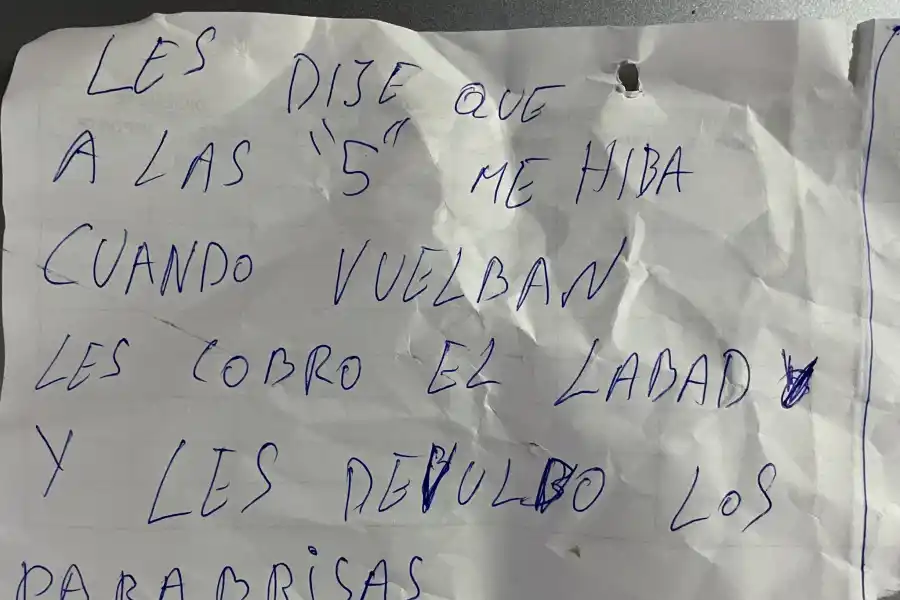 LES DIJE QUE
A LAS "5" ME HIBA
CUANDO VUELBAN
LES COBRO EL LABAD
Y LES DEVULBO LOS
PARABRISAS